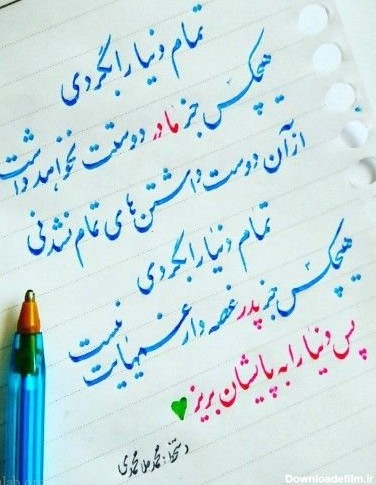 تمام دنیا را بگردی
هیچکس جز مادر دوستت نخواهد داشت
از آن دوست داشتن های تمام نشدنی
تمام دنیا را بگردی
هیچکس جز پدر غصه دار غمهایت نیست
پس دنیا را به پایشان بریز
دستخط: محمد ملامحمدی
Downloadefilm.ir